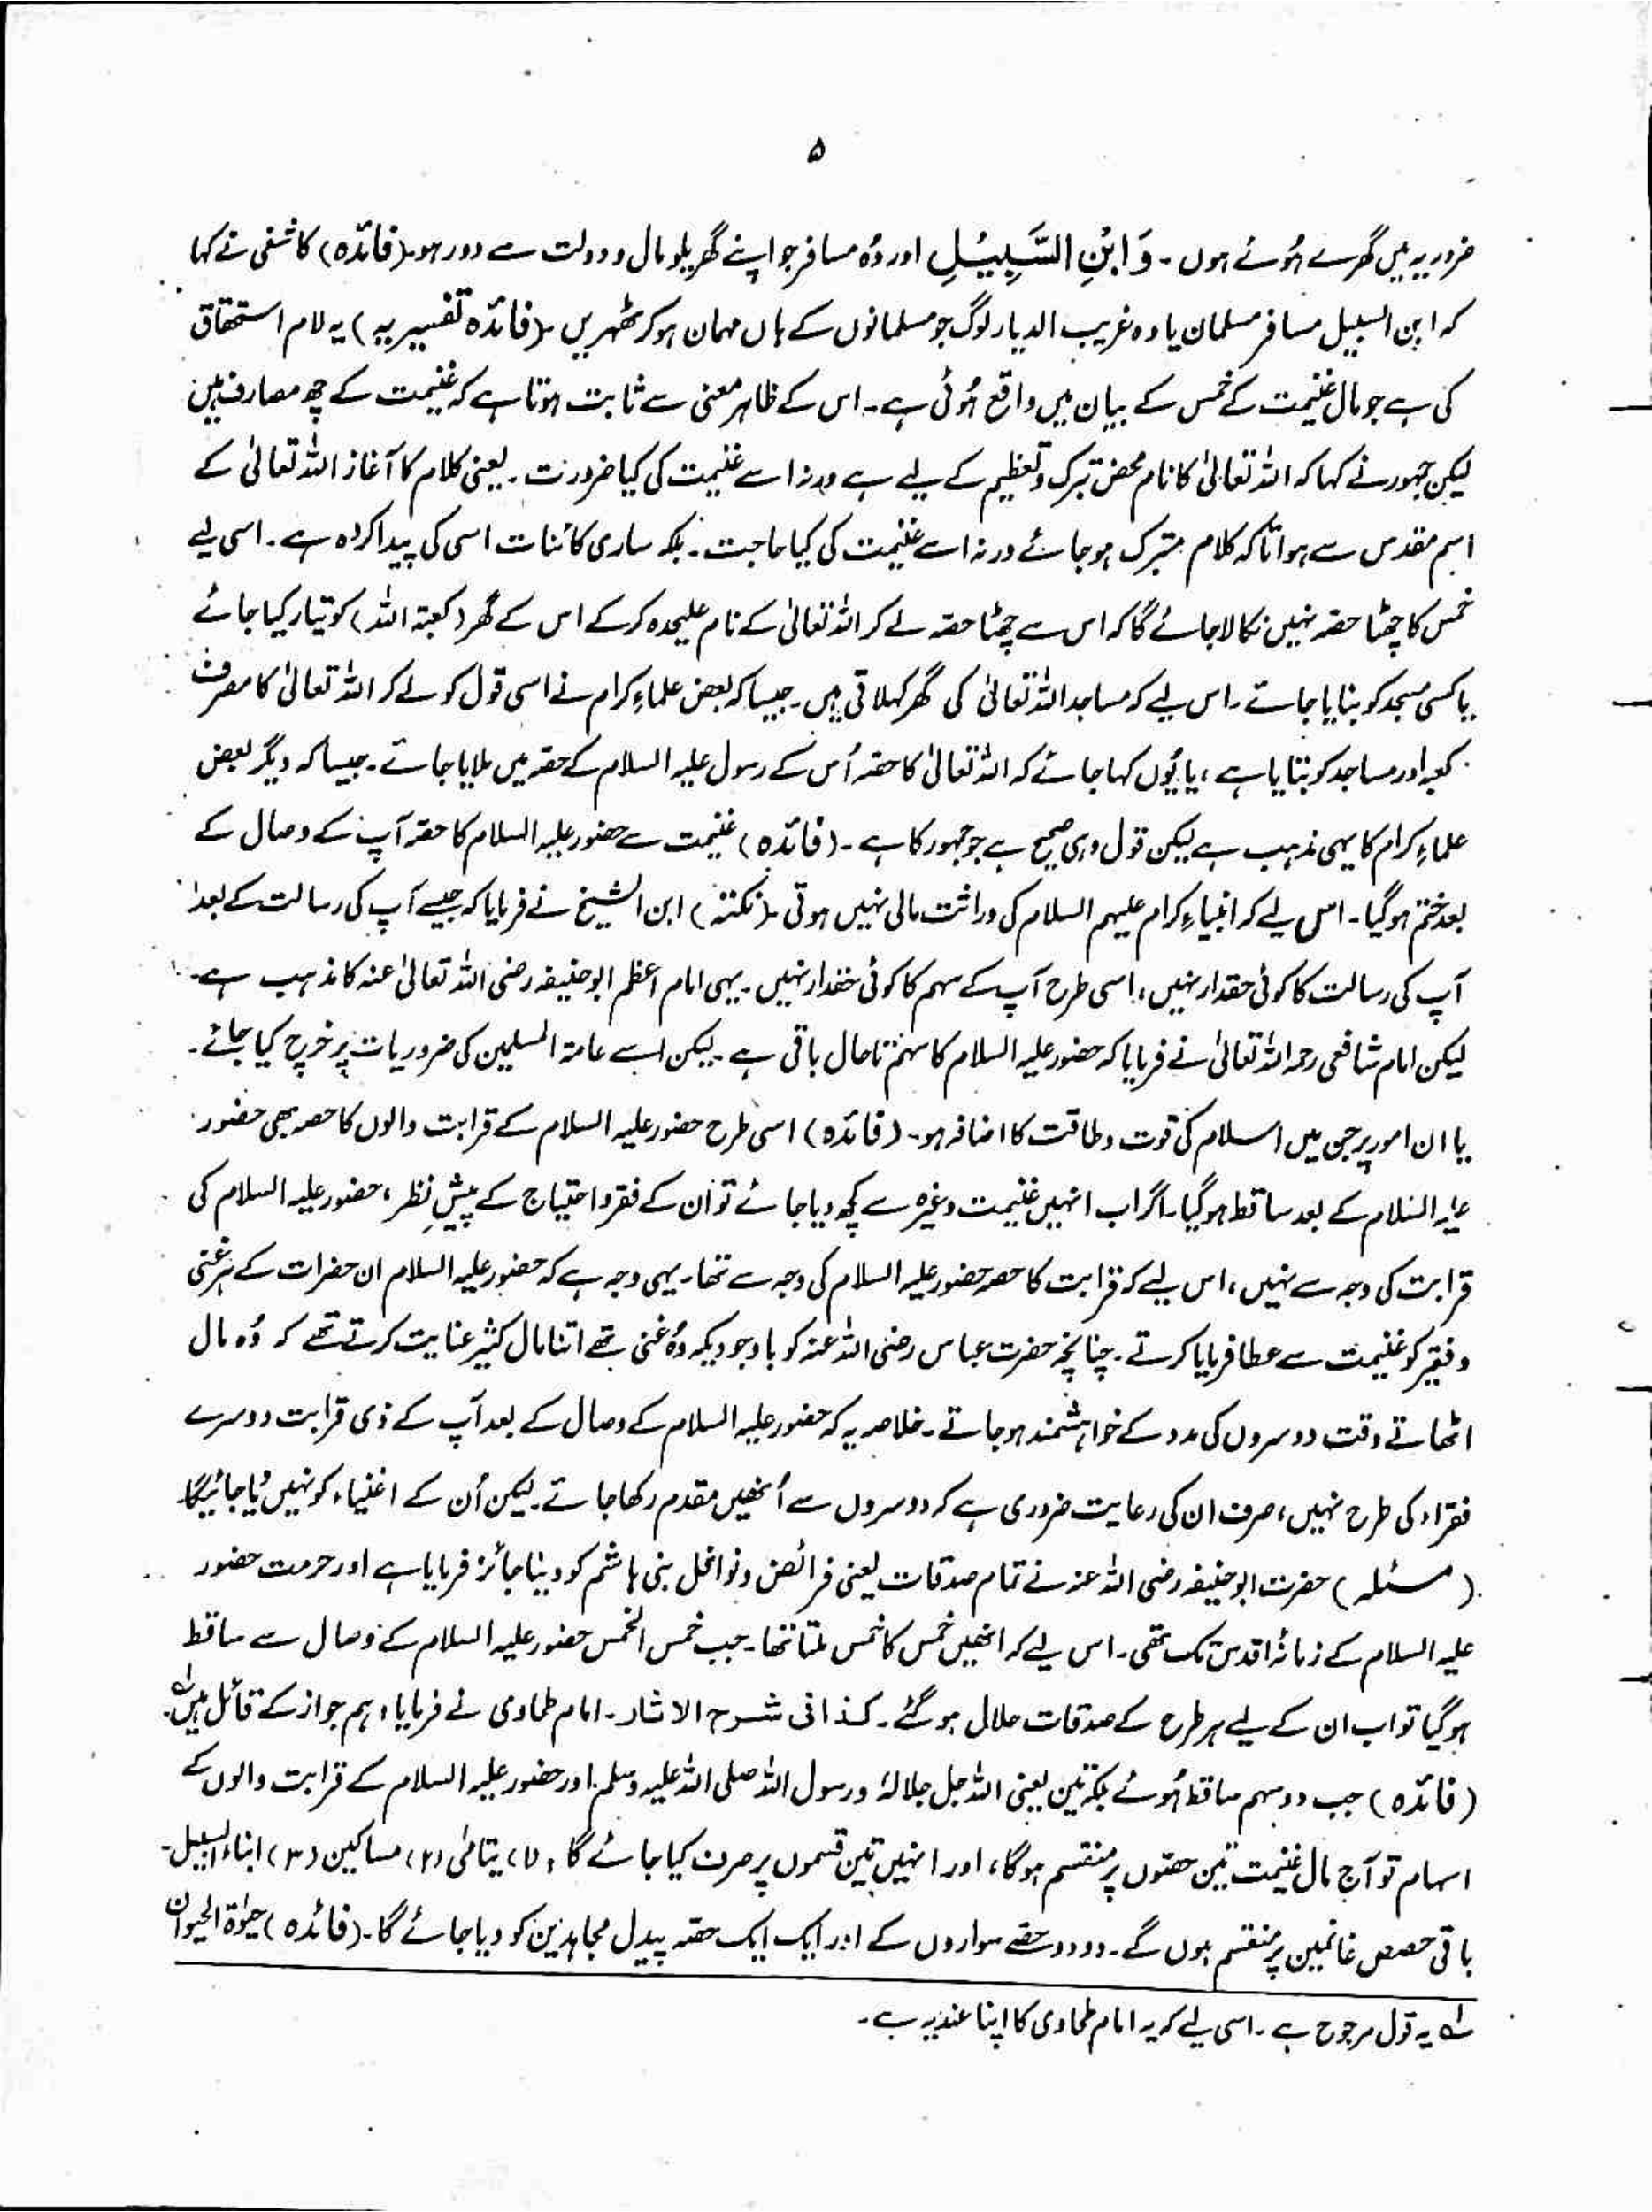 ۵
ضروریہ میں گھرے ہُوئے ہوں ۔ وَ ابْنِ السَّبِیْلِ اور وُہ مسافر جو اپنے گھریلو مال و دولت سے دور ہو۔ (فائدہ) کاشفی نے کہا
کہ ابن السبیل مسافر مسلمان یا وہ غریب الدیار لوگ جو مسلمانوں کے ہاں مہمان ہو کر ٹھہریں ۔ (فائدہ تفسیریہ) یہ لام استحقاق
کی ہے جو مال غنیمت کے خمس کے بیان میں واقع ہُوئی ہے ۔ اس کے ظاہر معنی سے ثابت ہوتا ہے کہ غنیمت کے چھ مصارف ہیں
لیکن جمہور نے کہا کہ اللہ تعالیٰ کا نام محض تبرک و تعظیم کے لیے ہے ورنہ اسے غنیمت کی کیا ضرورت ۔ یعنی کلام کا آغاز اللہ تعالیٰ کے
اسم مقدس سے ہوا تاکہ کلام متبرک ہو جائے ورنہ اسے غنیمت کی کیا حاجت ۔ بلکہ ساری کائنات اسی کی پیدا کردہ ہے ۔ اسی لیے
خمس کا چھٹا حصہ نہیں نکالا جائے گا کہ اس سے چھٹا حصہ لے کر اللہ تعالیٰ کے نام علیحدہ کر کے اس کے گھر (کعبۃ اللہ) کو تیار کیا جائے
یا کسی مسجد کو بنایا جائے ۔ اس لیے کہ مساجد اللہ تعالیٰ کی گھر کہلاتی ہیں ۔ جیسا کہ بعض علماءِ کرام نے اسی قول کو لے کر اللہ تعالیٰ کا مصرف
کعبہ اور مساجد کو بتایا ہے ، یا یُوں کہا جائے کہ اللہ تعالیٰ کا حصہ اُس کے رسول علیہ السلام کے حصہ میں ملایا جائے ۔ جیسا کہ دیگر بعض
علماءِ کرام کا یہی مذہب ہے لیکن قول وہی صحیح ہے جو جمہور کا ہے ۔ (فائدہ) غنیمت سے حضور علیہ السلام کا حصہ آپ کے وصال کے
بعد ختم ہو گیا ۔ اس لیے کہ انبیاءِ کرام علیہم السلام کی وراثت مالی نہیں ہوتی ۔ (نکتہ) ابن الشیخ نے فرمایا کہ جیسے آپ کی رسالت کے بعد
آپ کی رسالت کا کوئی حقدار نہیں ، اسی طرح آپ کے سہم کا کوئی حقدار نہیں ۔ یہی امام اعظم ابوحنیفہ رضی اللہ تعالیٰ عنہ کا مذہب ہے ۔
لیکن امام شافعی رحمہ اللہ تعالیٰ نے فرمایا کہ حضور علیہ السلام کا سہم تاحال باقی ہے ۔ لیکن اسے عامۃ المسلمین کی ضروریات پر خرچ کیا جائے ۔
یا ان امور پر جن میں اسلام کی قوت و طاقت کا اضافہ ہو ۔ (فائدہ) اسی طرح حضور علیہ السلام کے قرابت والوں کا حصہ بھی حضور
علیہ السلام کے بعد ساقط ہو گیا ۔ اگر اب انہیں غنیمت وغیرہ سے کچھ دیا جائے تو اُن کے فقر و احتیاج کے پیشِ نظر ، حضور علیہ السلام کی
قرابت کی وجہ سے نہیں ، اس لیے کہ قرابت کا حصہ حضور علیہ السلام کی وجہ سے تھا ۔ یہی وجہ ہے کہ حضور علیہ السلام ان حضرات کے ہر غنی
و فقیر کو غنیمت سے عطا فرمایا کرتے ۔ چنانچہ حضرت عباس رضی اللہ عنہ کو باوجودیکہ وُہ غنی تھے اتنا مال کثیر عنایت کرتے تھے کہ وُہ مال
اٹھاتے وقت دوسروں کی مدد کے خواہشمند ہو جاتے ۔ خلاصہ یہ کہ حضور علیہ السلام کے وصال کے بعد آپ کے ذی قرابت دوسرے
فقراء کی طرح نہیں ، صرف ان کی رعایت ضروری ہے کہ دوسروں سے اُنھیں مقدم رکھا جائے ۔ لیکن اُن کے اغنیاء کو نہیں دیا جائیگا
(مسئلہ) حضرت ابوحنیفہ رضی اللہ عنہ نے تمام صدقات یعنی فرائض و نوافل بنی ہاشم کو دینا جائز فرمایا ہے اور حرمت حضور
علیہ السلام کے زمانۂ اقدس تک تھی ۔ اس لیے کہ انھیں خمس کا خمس ملتا تھا ۔ جب خمس الخمس حضور علیہ السلام کے وصال سے ساقط
ہو گیا تو اب ان کے لیے ہر طرح کے صدقات حلال ہو گئے ۔ کذا فی شرح الاثار ۔ امام طحاوی نے فرمایا ، ہم جواز کے قائل ہیں ؎۱
(فائدہ) جب دو سہم ساقط ہُوئے بلکہ تین یعنی اللہ جل جلالہٗ و رسول اللہ صلی اللہ علیہ وسلم اور حضور علیہ السلام کے قرابت والوں کے
اسہام تو آج مال غنیمت تین حصّوں پر منقسم ہوگا ، اور انہیں تین قسموں پر صرف کیا جائے گا ، (۱) یتامٰی (۲) مساکین (۳) ابناء السبیل ۔
باقی حصص غانمین پر منقسم ہوں گے ۔ دو دو حصّے سواروں کے اور ایک ایک حصّہ پیدل مجاہدین کو دیا جائے گا ۔ (فائدہ) حیٰوۃ الحیوان
؎۱ یہ قول مرجوح ہے ۔ اسی لیے کہ یہ امام طحاوی کا اپنا عندیہ ہے ۔